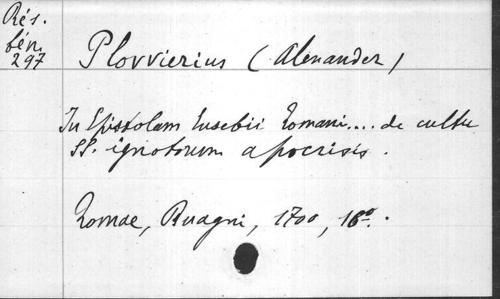 Rés.
fén.
297
Plovvierius (Alexander)
In Epistolam Eusebii Romani.... de cultu
SS. ignotorum apocrisis.
Romae, Buagni, 1700, 16º.